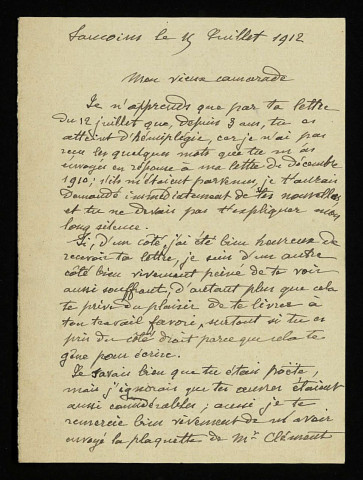 Sancoins le 15 Juillet 1912
Mon vieux camarade
Je n'apprends que par ta lettre
du 12 juillet que, depuis 3 ans, tu es
atteint d'hémiplégie, car je n'ai pas
reçu les quelques mots que tu m'as
envoyés en réponse à ma lettre de décembre
1910; s'ils m'étaient parvenus je t'aurais
demandé immédiatement de tes nouvelles
et tu ne devais pas t'expliquer mon
long silence.
Si, d'un côté, j'ai été bien heureux de
recevoir ta lettre, je suis d'un autre
côté bien vivement peiné de te voir
aussi souffrant, d'autant plus que cela
te prive du plaisir de te livrer à
ton travail favori, surtout si tu es
pris du côté droit parce que cela te
gêne pour écrire.
Je savais bien que tu étais poëte,
mais j'ignorais que tes œuvres étaient
aussi considérables; aussi je te
remercie bien vivement de m'avoir
envoyé la plaquette de Mr Clément